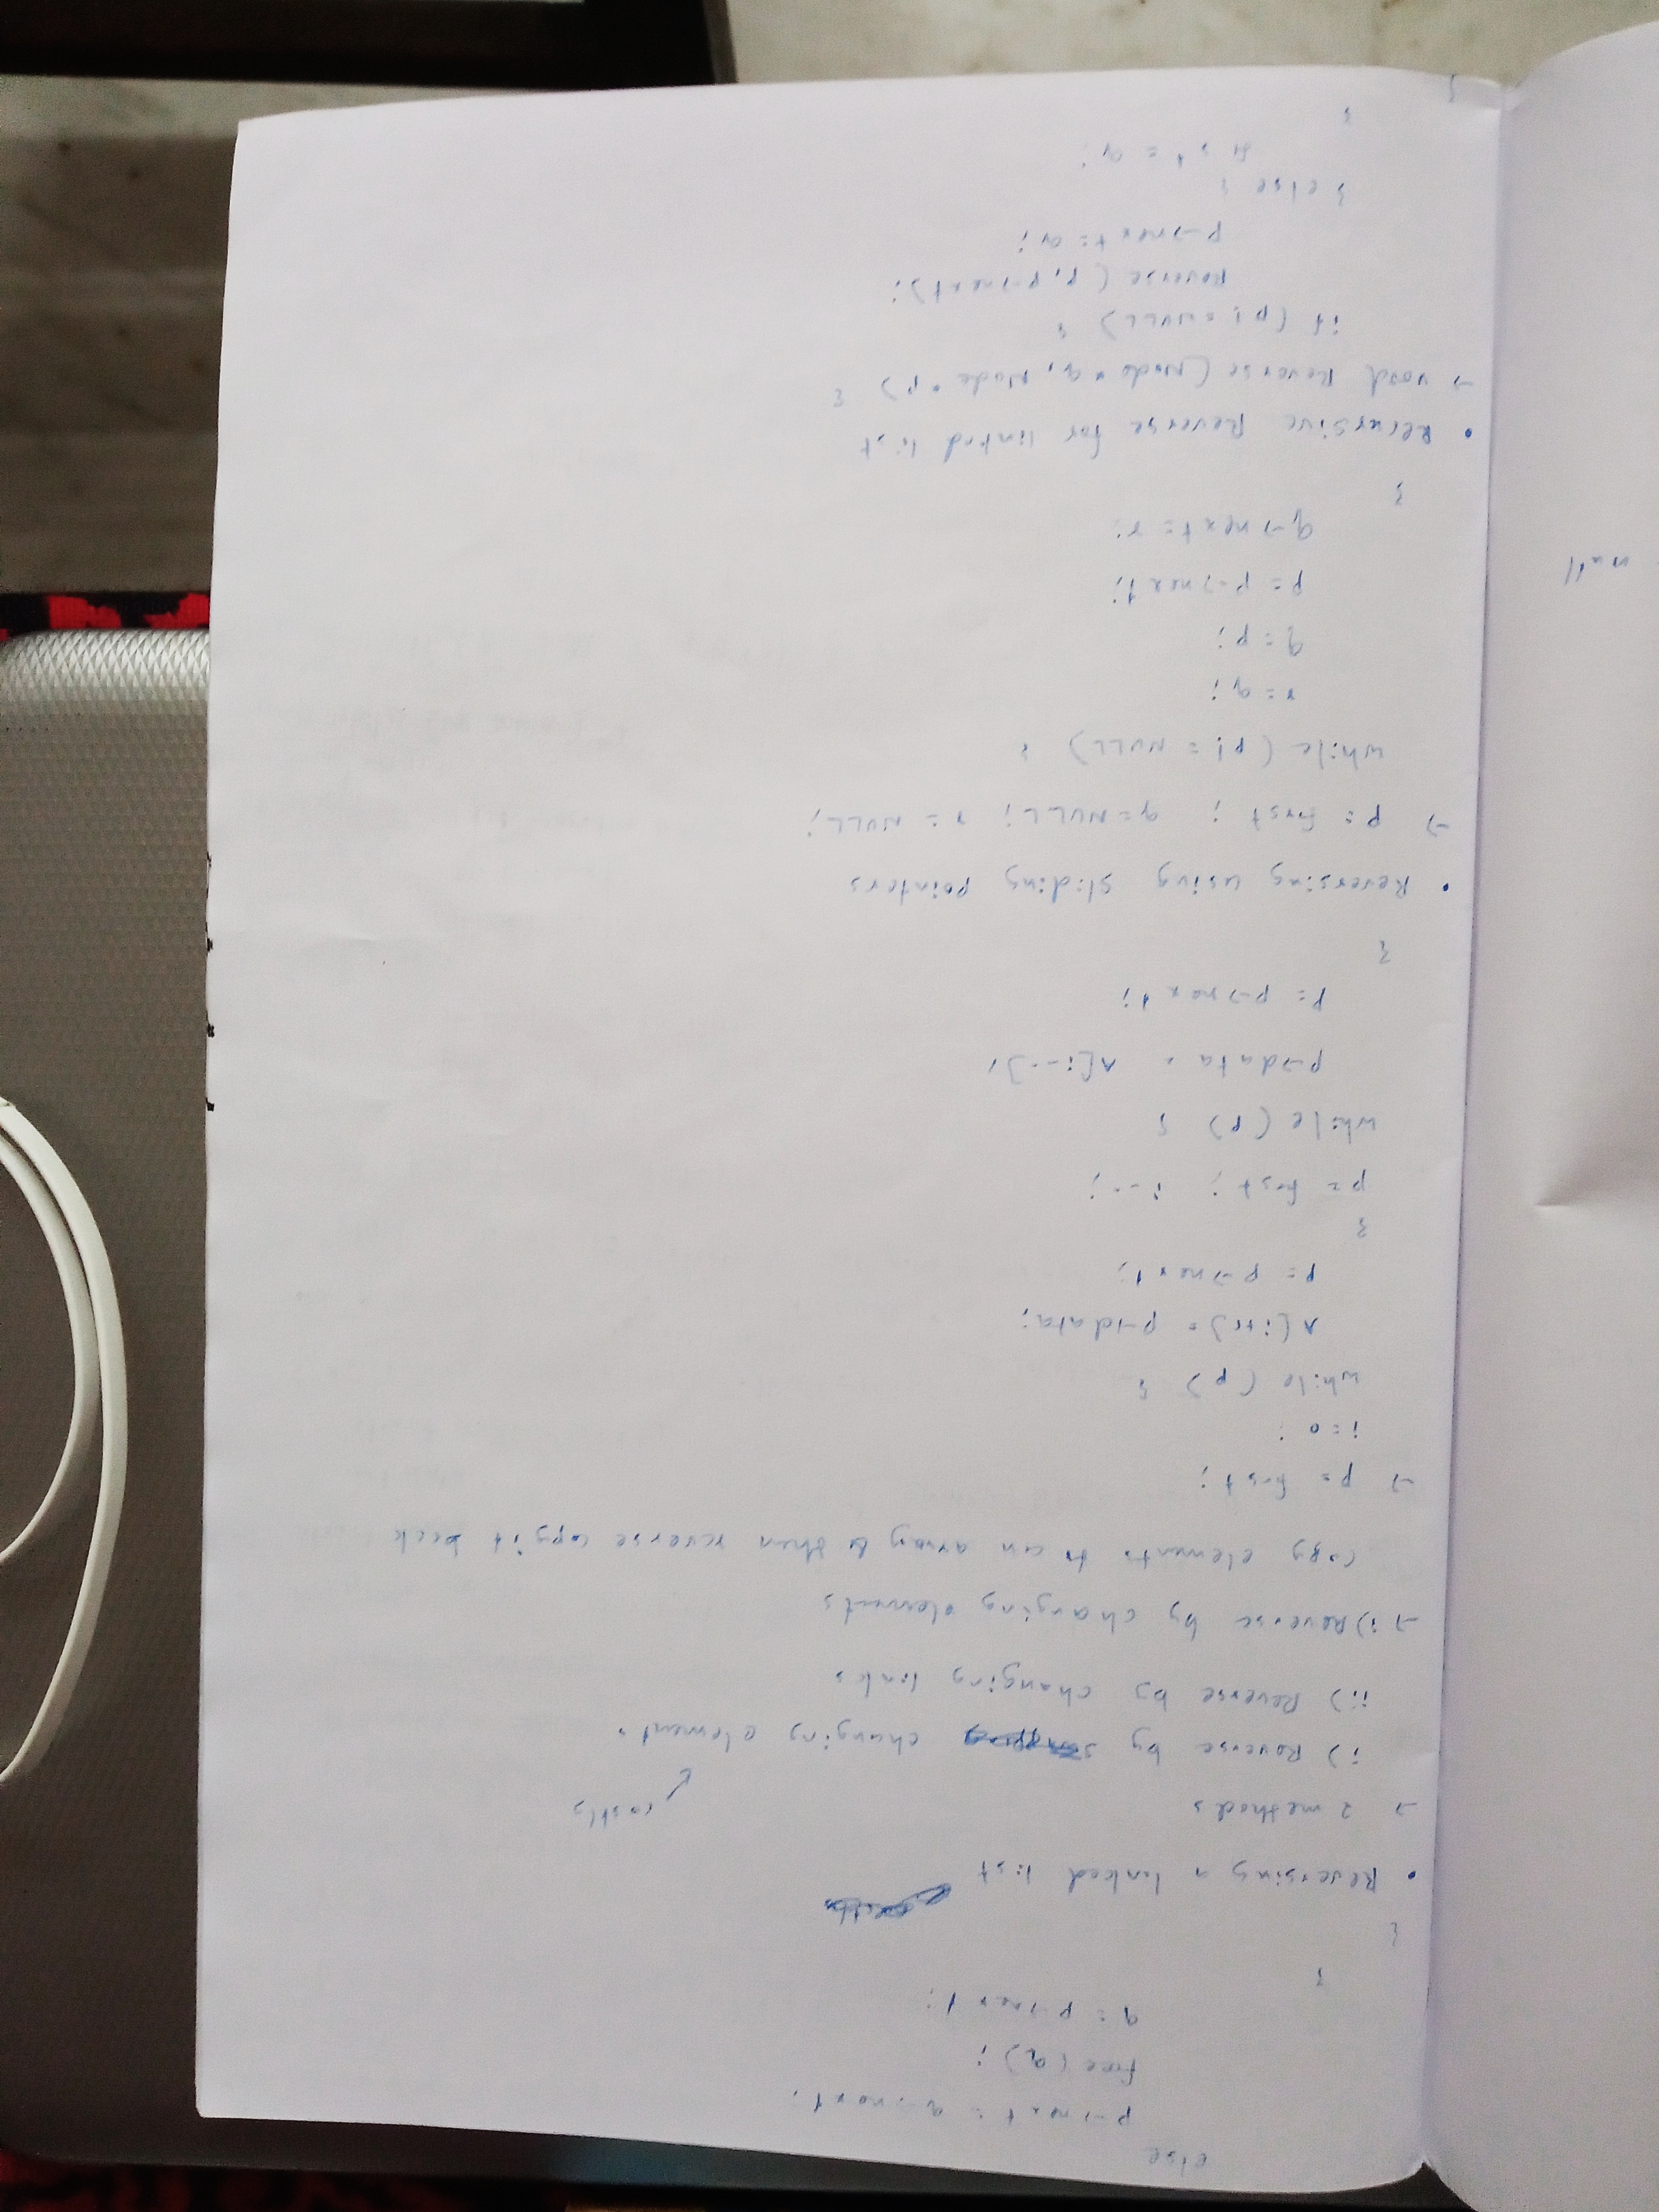 else
p->next = q->next;
free (q);
q = p->next;
}
}
• Reversing a linked list
-> 2 methods
costly
i) Reverse by changing elements
ii) Reverse by changing links
-> i) Reverse by changing elements
Copy elements to an array & then reverse copy it back
-> p = first;
i = 0;
while (p) {
A[i++] = p->data;
p = p->next;
}
p = first; i--;
while (p) {
p->data = A[i--];
p = p->next;
}
• Reversing using sliding pointers
-> p = first; q = NULL; r = NULL;
while (p != NULL) {
r = q;
q = p;
p = p->next;
q->next = r;
}
• Recursive Reverse for linked list
-> void Reverse (Node *q, Node *p) {
if (p != NULL) {
Reverse (p, p->next);
p->next = q;
} else {
first = q;
}
}
null